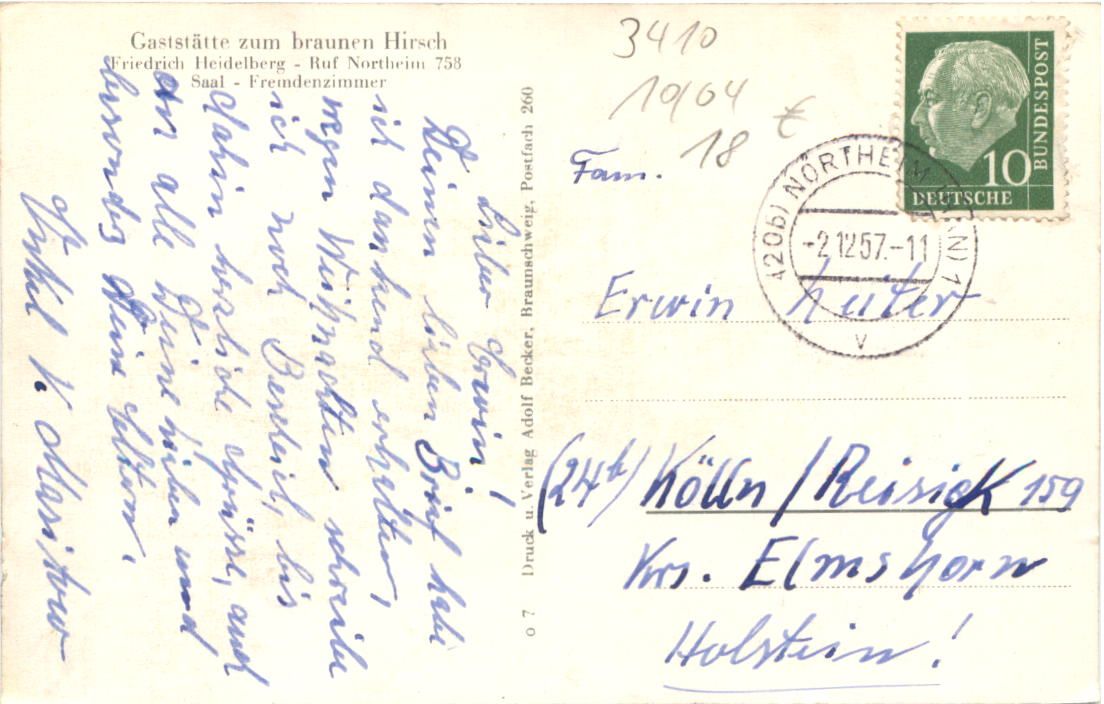 Gaststätte zum braunen Hirsch
Friedrich Heidelberg - Ruf Northeim 758
Saal - Fremdenzimmer
Lieber Erwin!
Deinen lieben Brief habe
ich dankend erhalten,
wegen Weihnachten schreibe
ich noch Bescheid, bis
dahin herzliche Grüsse, auch
an alle Deine Lieben und
besonders Deine Eltern.
Onkel K.
Druck u. Verlag Adolf Becker, Braunschweig, Postfach 260
o 7
3410
10/04
18 €
BUNDESPOST
10
DEUTSCHE
(20b) NORTHEIM (HAN) 1
-2.12.57.-11
v
Fam.
Erwin Huter
(24b) Kölln/Reisiek 159
Krs. Elmshorn
Holstein!